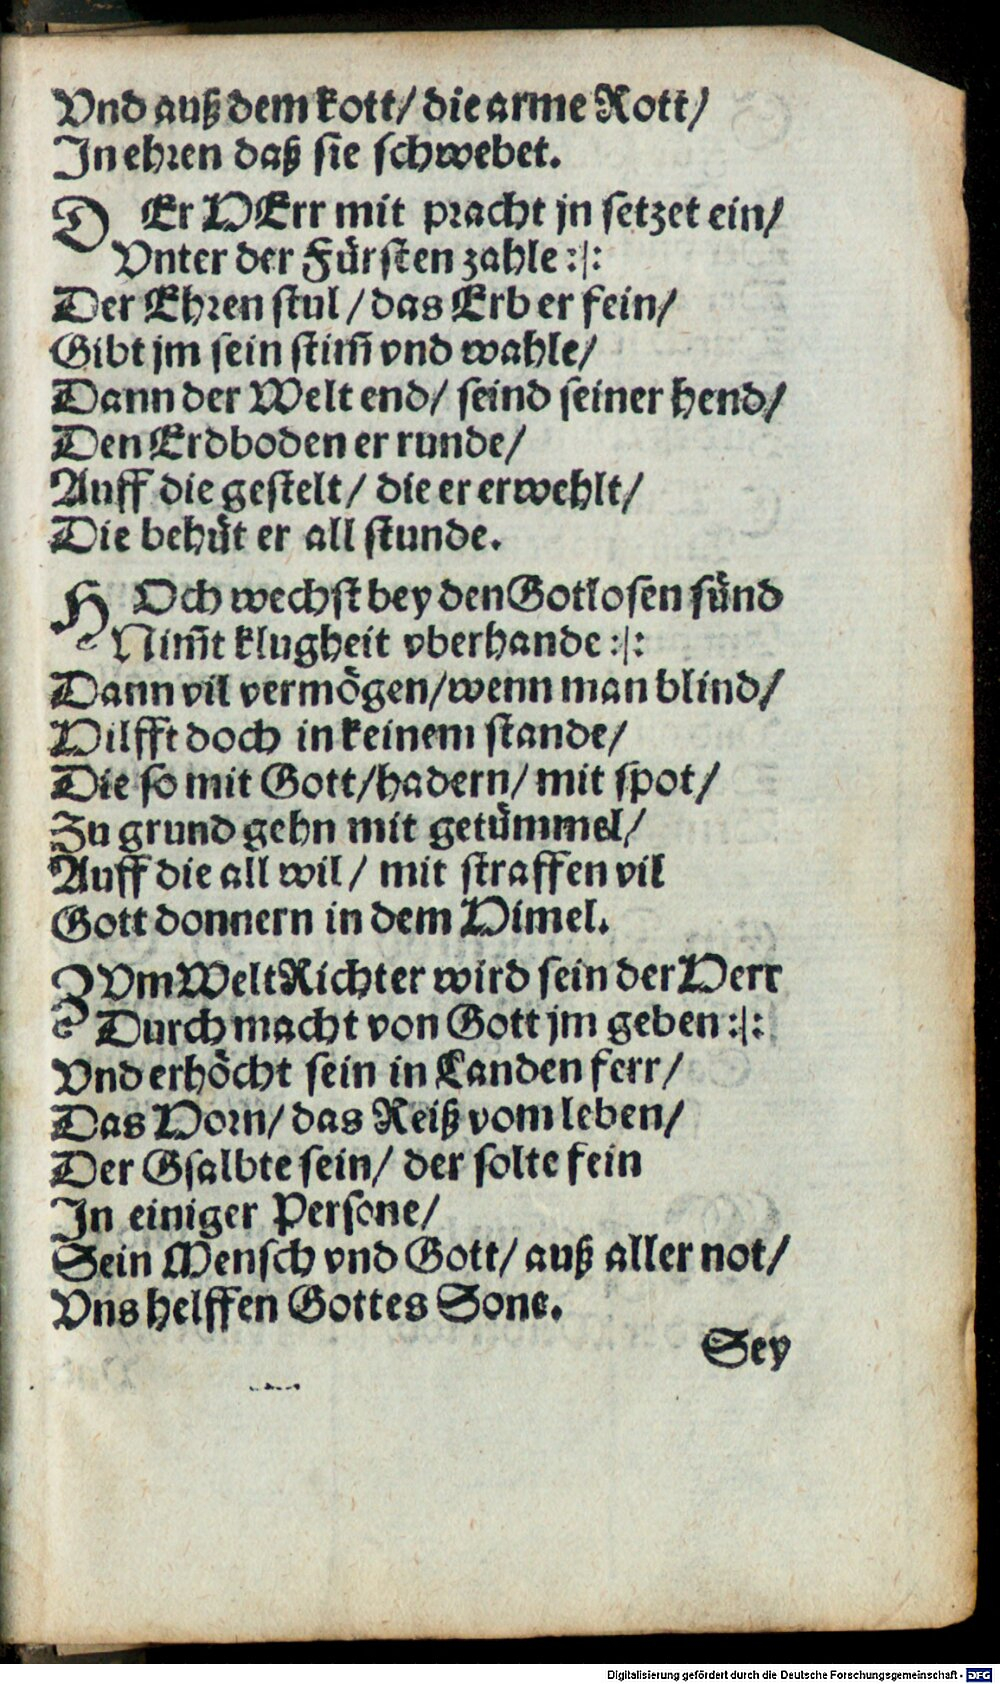 Vnd auß dem kott/ die arme Rott/
In ehren daß sie schwebet.
DEr HErr mit pracht jn setzet ein/
Vnter der Fürsten zahle :|:
Der Ehren stul / das Erb er fein/
Gibt jm sein stim̃ vnd wahle/
Dann der Welt end/ seind seiner hend/
Den Erdboden er runde/
Auff die gestelt/ die er erwehlt/
Die behüt er all stunde.
HOch wechst bey den Gotlosen sünd
Nim̃t klugheit vberhande :|:
Dann vil vermögen/wenn man blind/
Hilfft doch in keinem stande/
Die so mit Gott/hadern/ mit spot/
Zu grund gehn mit getümmel/
Auff die all wil/ mit straffen vil
Gott donnern in dem Himel.
ZVm WeltRichter wird sein der Herr
Durch macht von Gott jm geben :|:
Vnd erhöcht sein in Landen ferr/
Das Horn/ das Reiß vom leben/
Der Gsalbte sein/ der solte fein
In einiger Persone/
Sein Mensch vnd Gott/ auß aller not/
Vns helffen Gottes Sone.
Sey
Digitalisierung gefördert durch die Deutsche Forschungsgemeinschaft - DFG